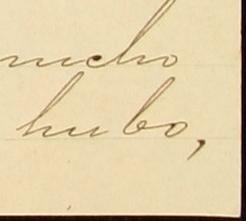 mucho
hubo,